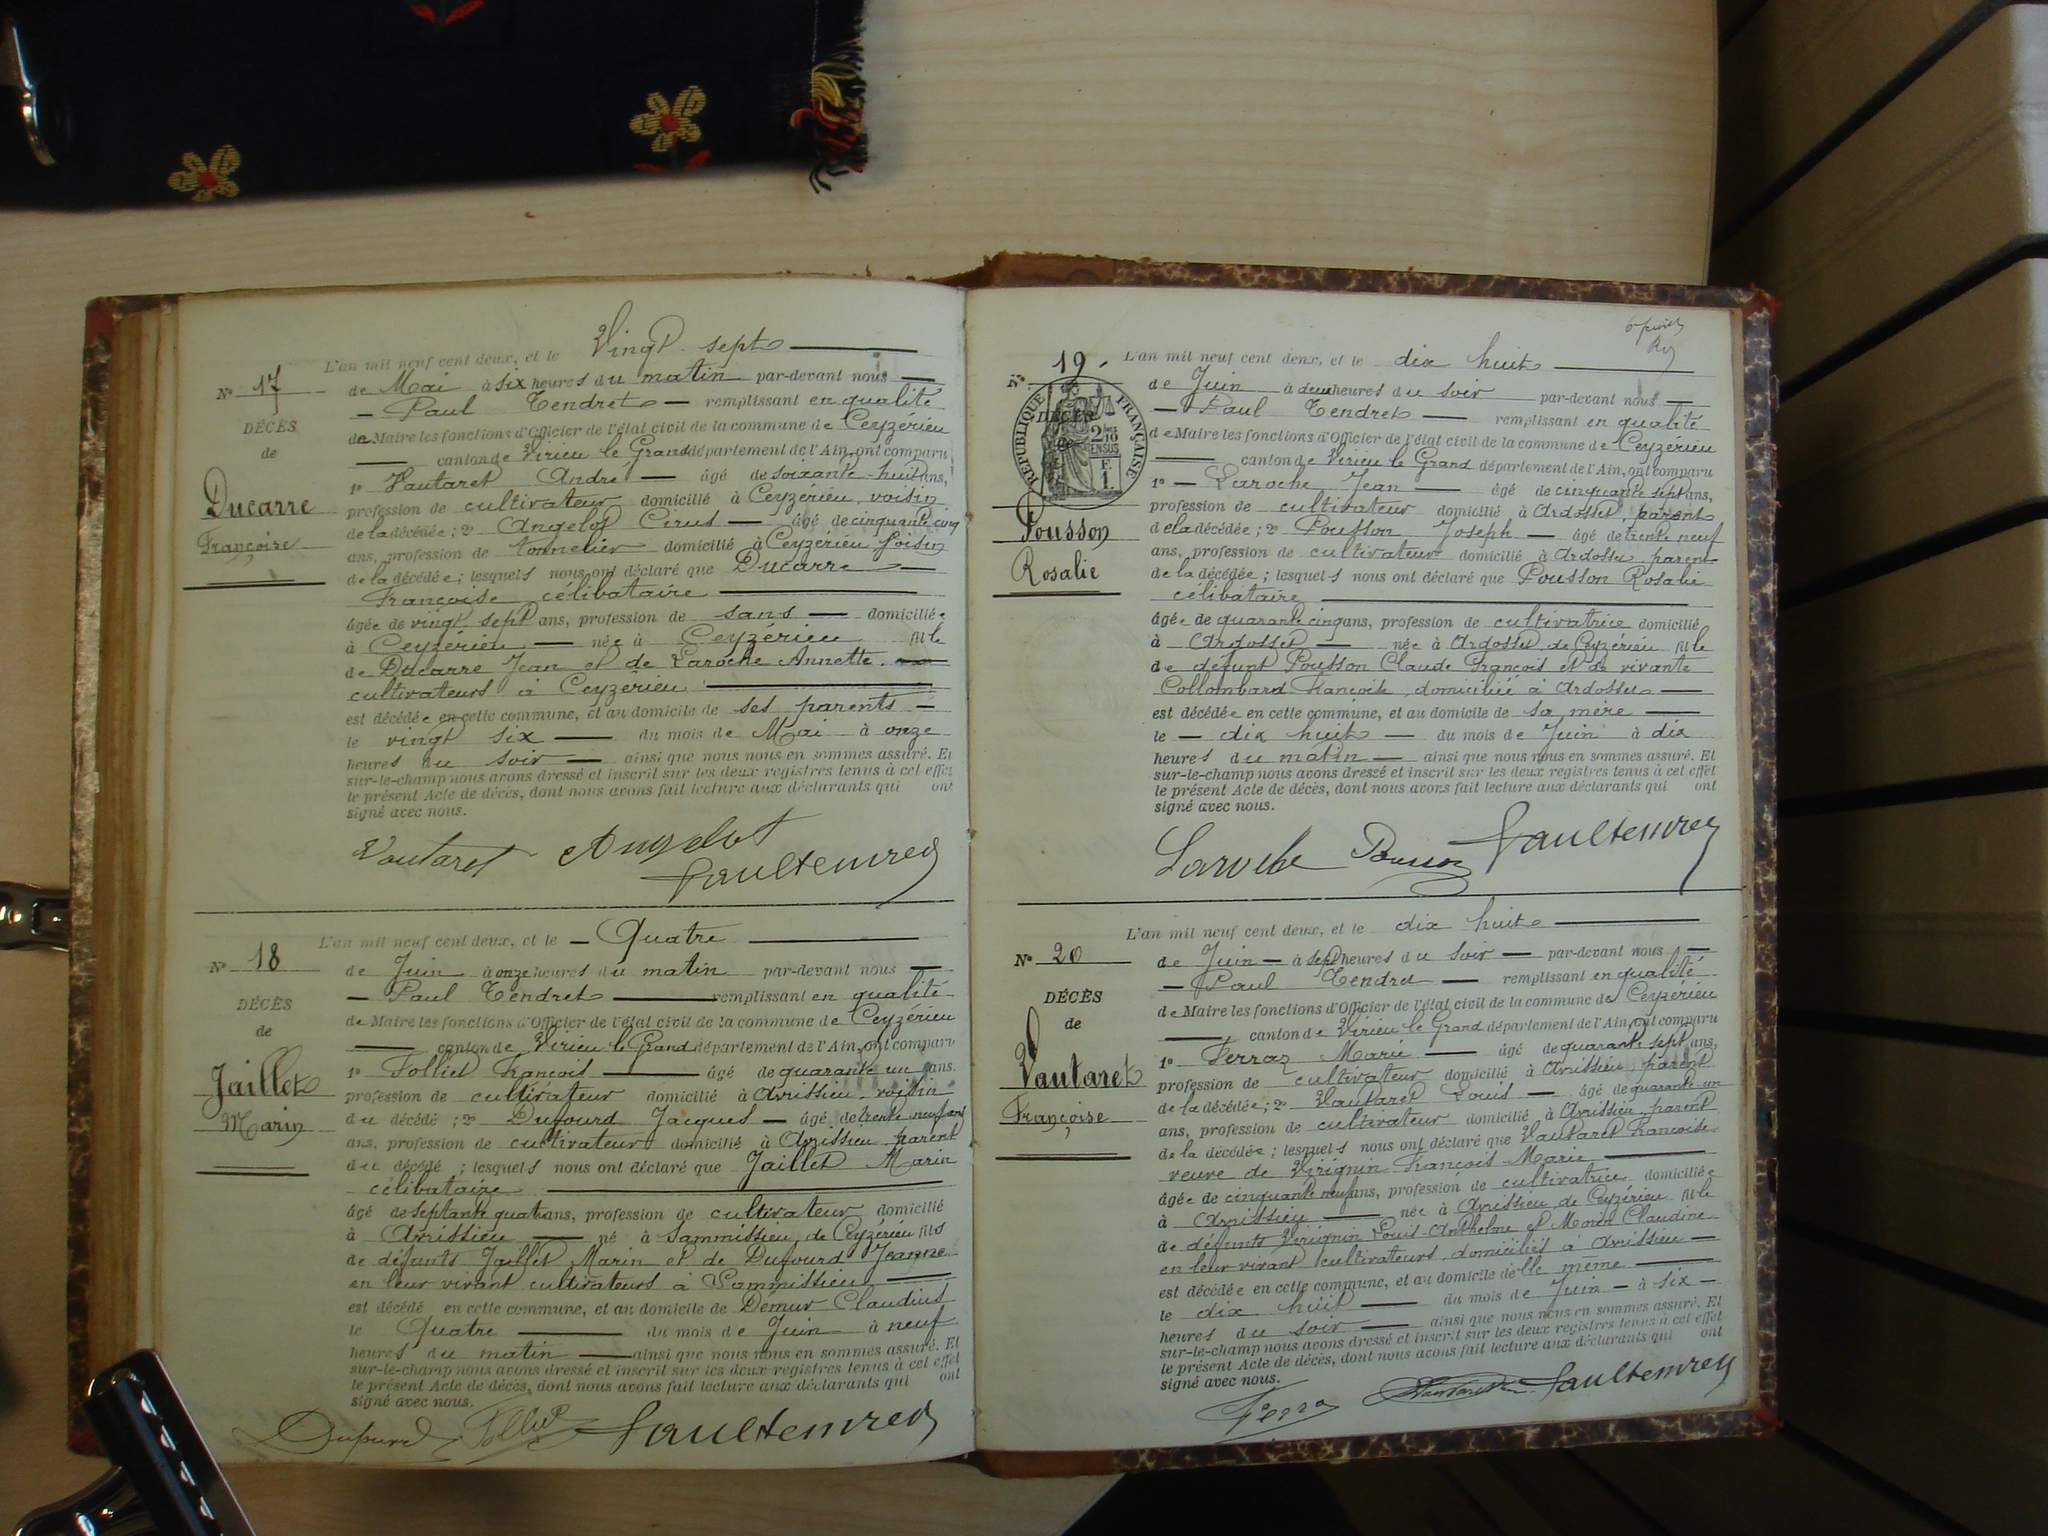 L'an mil neuf cent deux, et le Vingt sept
N° 17
de Mai à six heures du matin par-devant nous
Paul Tendret remplissant en qualité
DÉCÈS
de Maire les fonctions d'Officier de l'état civil de la commune de Ceyzérieu
de
canton de Virieu le Grand département de l'Ain, ont comparu
1° Vautaret André âgé de soixante huit ans,
Ducarre
profession de cultivateur domicilié à Ceyzérieu voisin
de la décédée; 2° Angelot Cirus âgé de cinquante cinq
Françoise
ans, profession de tonnelier domicilié à Ceyzérieu voisin
de la décédée; lesquels nous ont déclaré que Ducarre
Françoise célibataire
âgée de vingt sept ans, profession de sans domiciliée
à Ceyzérieu née à Ceyzérieu fille
de Ducarre Jean et de Laroche Annette
cultivateurs à Ceyzérieu
est décédée en cette commune, et au domicile de ses parents
le vingt six du mois de Mai à onze
heures du soir ainsi que nous nous en sommes assuré. Et
sur-le-champ nous avons dressé et inscrit sur les deux registres tenus à cet effet
le présent Acte de décès, dont nous avons fait lecture aux déclarants qui ont
signé avec nous.
Vautaret Angelot
Paul Tendret
L'an mil neuf cent deux, et le Quatre
N° 18
de Juin à onze heures du matin par-devant nous
Paul Tendret remplissant en qualité
DÉCÈS
de Maire les fonctions d'Officier de l'état civil de la commune de Ceyzérieu
de
canton de Virieu le Grand département de l'Ain, ont comparu
1° Folliet François âgé de quarante un ans.
Jaillet
profession de cultivateur domicilié à Avrissieu, voisin
Marin
du décédé; 2° Dufourd Jacques âgé de trente neuf ans
ans, profession de cultivateur domicilié à Avrissieu parent
du décédé; lesquels nous ont déclaré que Jaillet Marin
célibataire
âgé de septante quatre ans, profession de cultivateur domicilié
à Avrissieu né à Sammissieu de Ceyzérieu fils
de défunts Jaillet Marin et de Dufourd Jeanne
en leur vivant cultivateurs à Sammissieu
est décédé en cette commune, et au domicile de Demur Claudius
le Quatre du mois de Juin à neuf
heures du matin ainsi que nous nous en sommes assuré. Et
sur-le-champ nous avons dressé et inscrit sur les deux registres tenus à cet effet
le présent Acte de décès, dont nous avons fait lecture aux déclarants qui ont
signé avec nous.
Dufourd Folliet Paul Tendret
L'an mil neuf cent deux, et le dix huit
N° 19
de Juin à deux heures du soir par-devant nous
Paul Tendret remplissant en qualité
RÉPUBLIQUE FRANÇAISE
DÉCÈS
2/10 EN SUS
F. 1.
de
de Maire les fonctions d'Officier de l'état civil de la commune de Ceyzérieu
canton de Virieu le Grand département de l'Ain, ont comparu
1° Laroche Jean âgé de cinquante sept ans,
profession de cultivateur domicilié à Ardosset, parent
Pousson
de la décédée; 2° Pousson Joseph âgé de trente neuf
ans, profession de cultivateur domicilié à Ardosset parent
Rosalie
de la décédée; lesquels nous ont déclaré que Pousson Rosalie
célibataire
âgée de quarante cinq ans, profession de cultivatrice domiciliée
à Ardosset née à Ardosset de Ceyzérieu fille
de défunt Pousson Claude François et de vivante
Collombard Françoise, domiciliée à Ardosset
est décédée en cette commune, et au domicile de sa mère
le dix huit du mois de Juin à dix
heures du matin ainsi que nous nous en sommes assuré. Et
sur-le-champ nous avons dressé et inscrit sur les deux registres tenus à cet effet
le présent Acte de décès, dont nous avons fait lecture aux déclarants qui ont
signé avec nous.
Laroche Pousson Paul Tendret
L'an mil neuf cent deux, et le dix huit
N° 20
de Juin à sept heures du soir par-devant nous
Paul Tendret remplissant en qualité
DÉCÈS
de Maire les fonctions d'Officier de l'état civil de la commune de Ceyzérieu
de
canton de Virieu le Grand département de l'Ain, ont comparu
1° Ferraz Marie âgé de quarante sept ans,
Vautaret
profession de cultivateur domicilié à Avrissieu parent
de la décédée; 2° Vautaret Louis âgé de quarante un
Françoise
ans, profession de cultivateur domicilié à Avrissieu, parent
de la décédée; lesquels nous ont déclaré que Vautaret Françoise
veuve de Virignin François Marie
âgée de cinquante neuf ans, profession de cultivatrice domiciliée
à Avrissieu née à Avrissieu de Ceyzérieu fille
de défunts Virignin Louis Anthelme et Morin Claudine
en leur vivant cultivateurs domiciliés à Avrissieu
est décédée en cette commune, et au domicile d'elle même
le dix huit du mois de Juin à six
heures du soir ainsi que nous nous en sommes assuré. Et
sur-le-champ nous avons dressé et inscrit sur les deux registres tenus à cet effet
le présent Acte de décès, dont nous avons fait lecture aux déclarants qui ont
signé avec nous.
Ferra Paul Tendret